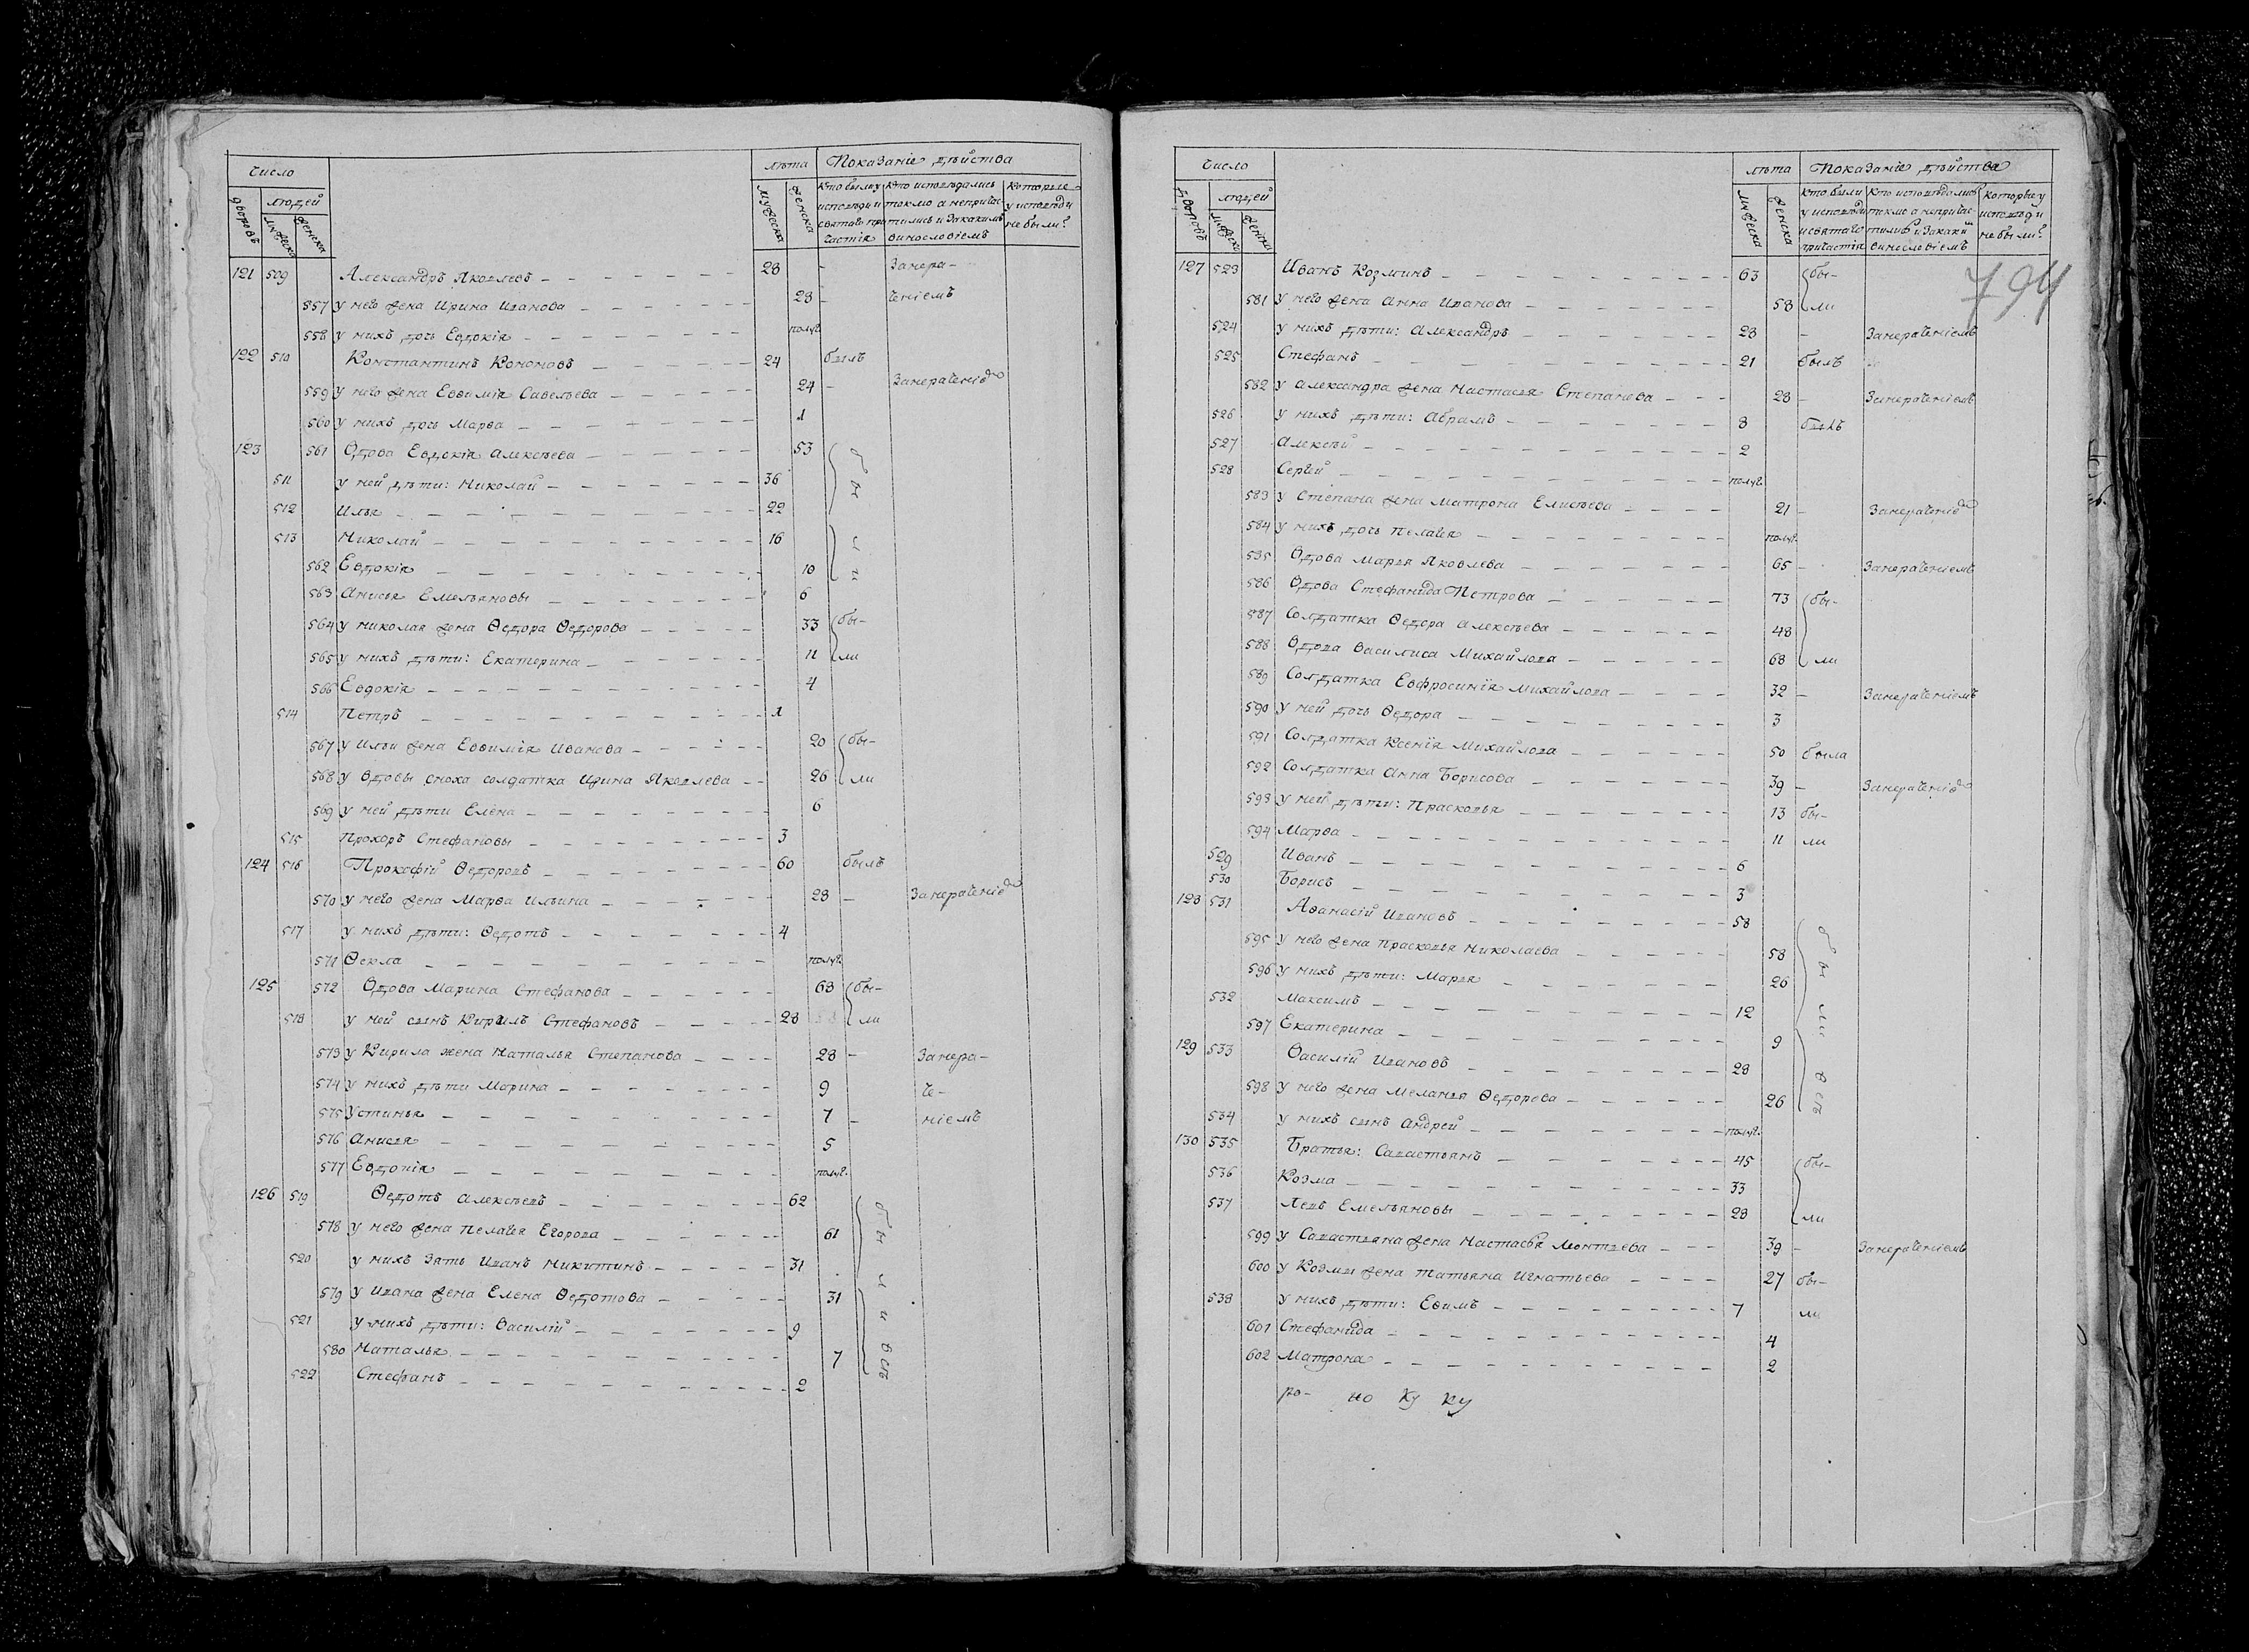 Число
лѣта Показаніе дѣйства
дворовъ людей мужеска женска
мужеска женска
Кто были у исповѣди и святаго причастія
Кто исповѣдались токмо а непричастились и закакимъ винословіемъ
Которые у исповѣди небыли?
121 509 Александръ Яковлевъ 28 - Занера-
557 у него жена Ирина Иванова 28 - ченіемъ
558 у нихъ дочь Евдокія полуг.
122 510 Константинъ Кононовъ 24 былъ
559 у него жена Евѳимія Савельева 24 - Занераченіе
560 у нихъ дочь Марѳа 1
123 561 Вдова Евдокія Алексѣева 53 бы
511 у ней дѣти: Николай 36
512 Илья 22
513 Николай 16 ли
562 Евдокія 10
563 Анисья Емельяновы 6
564 у Николая жена Ѳедора Ѳедорова 33 бы-
565 у нихъ дѣти: Екатерина 11 ли
566 Евдокія 4
514 Петръ 1
567 у Ильи жена Евѳимія Иванова 20 бы-
568 у вдовы сноха солдатка Ирина Яковлева 26 ли
569 у ней дѣти Елена 6
515 Прохоръ Стефановы 3
124 516 Прокофій Ѳедоровъ 60 былъ
570 у него жена Марѳа Ильина 28 - Занераченіе
517 у нихъ дѣти: Ѳедотъ 4
571 Ѳекла полуг.
125 572 Вдова Марина Стефанова 68 бы-
518 у ней сынъ Кирилъ Стефановъ 28 ли
573 у Кирила жена Наталья Степанова 28 - Занера-
574 у нихъ дѣти Марина 9 че-
575 Устинья 7 - ніемъ
576 Анисья 5
577 Евдокія полуг.
126 519 Ѳедотъ Алексѣевъ 62 бы
578 у него жена Пелагея Егорова 61
520 у нихъ зять Иванъ Никитинъ 31 ли
579 у Ивана жена Елена Ѳедотова 31
521 у нихъ дѣти: Василій 9 всѣ
580 Наталья 7
522 Стефанъ 2
Число
лѣта Показаніе дѣйства
дворовъ людей мужеска женска
мужеска женска
Кто были у исповѣди и святаго причастія
Кто исповѣдались токмо а непричастились и закаким винословіемъ
которые у исповѣди небыли?
794
127 523 Иванъ Козминъ 63 бы-
581 у него жена Анна Иванова 58 ли
524 у нихъ дѣти: Александръ 28 - Занераченіемъ
525 Стефанъ 21 былъ
582 у Александра жена Настасья Степанова 28 - Занераченіемъ
526 у нихъ дѣти: Абрамъ 8 былъ
527 Алексѣй 2
528 Сергей полуг.
583 у Степана жена Матрона Елисѣева 21 - Занераченіе
584 у нихъ дочь Пелагея полуг.
585 Вдова Марья Яковлева 65 - Занераченіемъ
586 Вдова Стефанида Петрова 73 бы-
587 Солдатка Ѳедора Алексѣева 48
588 Вдова Василиса Михайлова 68 ли
589 Солдатка Евфросинія Михайлова 32 - Занераченіемъ
590 у ней дочь Ѳедора 3
591 Солдатка Ксенія Михайлова 50 была
592 Солдатка Анна Борисова 39 - Занераченіе
593 у ней дѣти: Прасковья 13 бы-
594 Марѳа 11 ли
529 Иванъ 6
530 Борисъ 3
128 531 Аѳанасій Ивановъ 58 бы
595 у него жена Прасковья Николаева 58
596 у нихъ дѣти: Марья 26
532 Максимъ 12 ли
597 Екатерина 9
129 533 Василій Ивановъ 28
598 у него жена Меланья Ѳедорова 26 всѣ
534 у нихъ сынъ Андрей полуг.
130 535 Братья: Савастьянъ 45 бы-
536 Козма 33
537 Левъ Емельяновы 28 ли
599 у Савастьяна жена Настасья Леонтьева 39 - Занераченіемъ
600 у Козмы жена Татьяна Игнатьева 27 бы-
538 у нихъ дѣти: Еѳимъ 7 ли
601 Стефанида 4
602 Матрона 2
но ку ку